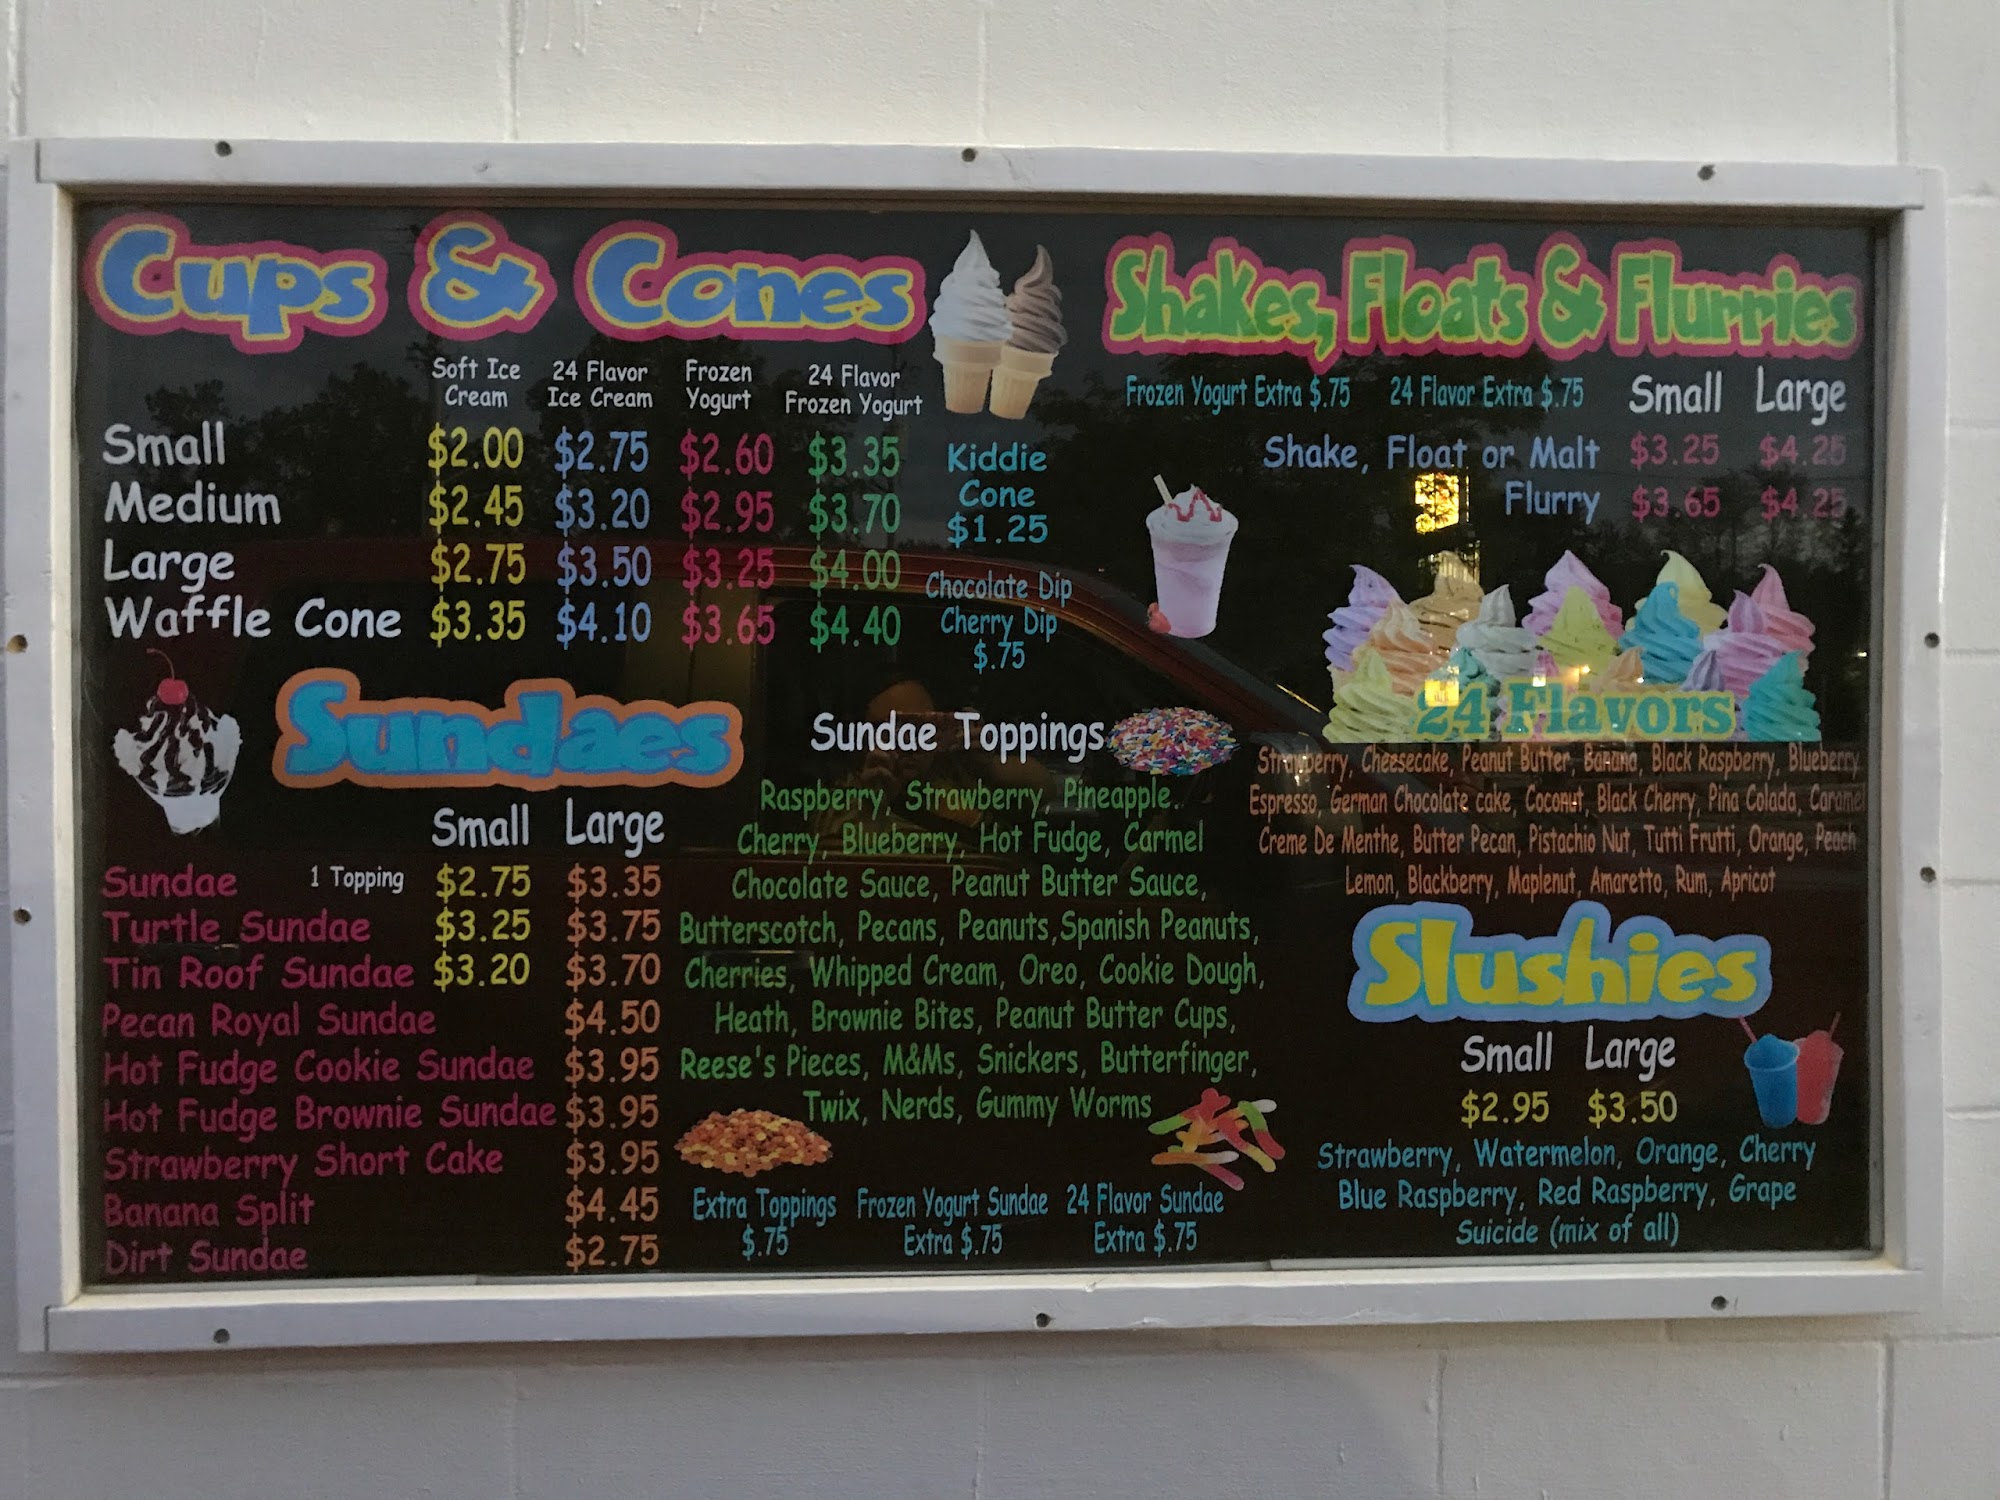 Cups & Cones
Soft Ice Cream
24 Flavor Ice Cream
Frozen Yogurt
24 Flavor Frozen Yogurt
Small $2.00 $2.75 $2.60 $3.35
Medium $2.45 $3.20 $2.95 $3.70
Large $2.75 $3.50 $3.25 $4.00
Waffle Cone $3.35 $4.10 $3.65 $4.40
Kiddie
Cone
$1.25
Chocolate Dip
Cherry Dip
$.75
Sundaes
Small Large
Sundae 1 Topping $2.75 $3.35
Turtle Sundae $3.25 $3.75
Tin Roof Sundae $3.20 $3.70
Pecan Royal Sundae $4.50
Hot Fudge Cookie Sundae $3.95
Hot Fudge Brownie Sundae $3.95
Strawberry Short Cake $3.95
Banana Split $4.45
Dirt Sundae $2.75
Sundae Toppings
Raspberry, Strawberry, Pineapple.
Cherry, Blueberry, Hot Fudge, Carmel
Chocolate Sauce, Peanut Butter Sauce,
Butterscotch, Pecans, Peanuts,Spanish Peanuts,
Cherries, Whipped Cream, Oreo, Cookie Dough,
Heath, Brownie Bites, Peanut Butter Cups,
Reese's Pieces, M&Ms, Snickers, Butterfinger,
Twix, Nerds, Gummy Worms
Extra Toppings
$.75
Frozen Yogurt Sundae
Extra $.75
24 Flavor Sundae
Extra $.75
Shakes, Floats & Flurries
Frozen Yogurt Extra $.75 24 Flavor Extra $.75 Small Large
Shake, Float or Malt $3.25 $4.25
Flurry $3.65 $4.25
24 Flavors
Strawberry, Cheesecake, Peanut Butter, Banana, Black Raspberry, Blueberry
Espresso, German Chocolate cake, Coconut, Black Cherry, Pina Colada, Caramel
Creme De Menthe, Butter Pecan, Pistachio Nut, Tutti Frutti, Orange, Peach
Lemon, Blackberry, Maplenut, Amaretto, Rum, Apricot
Slushies
Small Large
$2.95 $3.50
Strawberry, Watermelon, Orange, Cherry
Blue Raspberry, Red Raspberry, Grape
Suicide (mix of all)